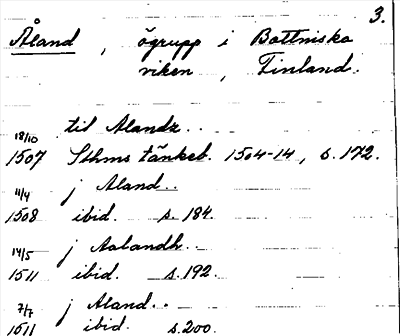 3.
Åland, ögrupp i Bottniska
viken, Finland.
18/10 til Alandz..
1507 Sthms tänkeb. 1504-14, s. 172.
11/4 j Aland..
1508 ibid. s. 184.
14/5 j Aalandh..
1511 ibid. s. 192.
7/7 j Aland..
1511 ibid. s. 200.